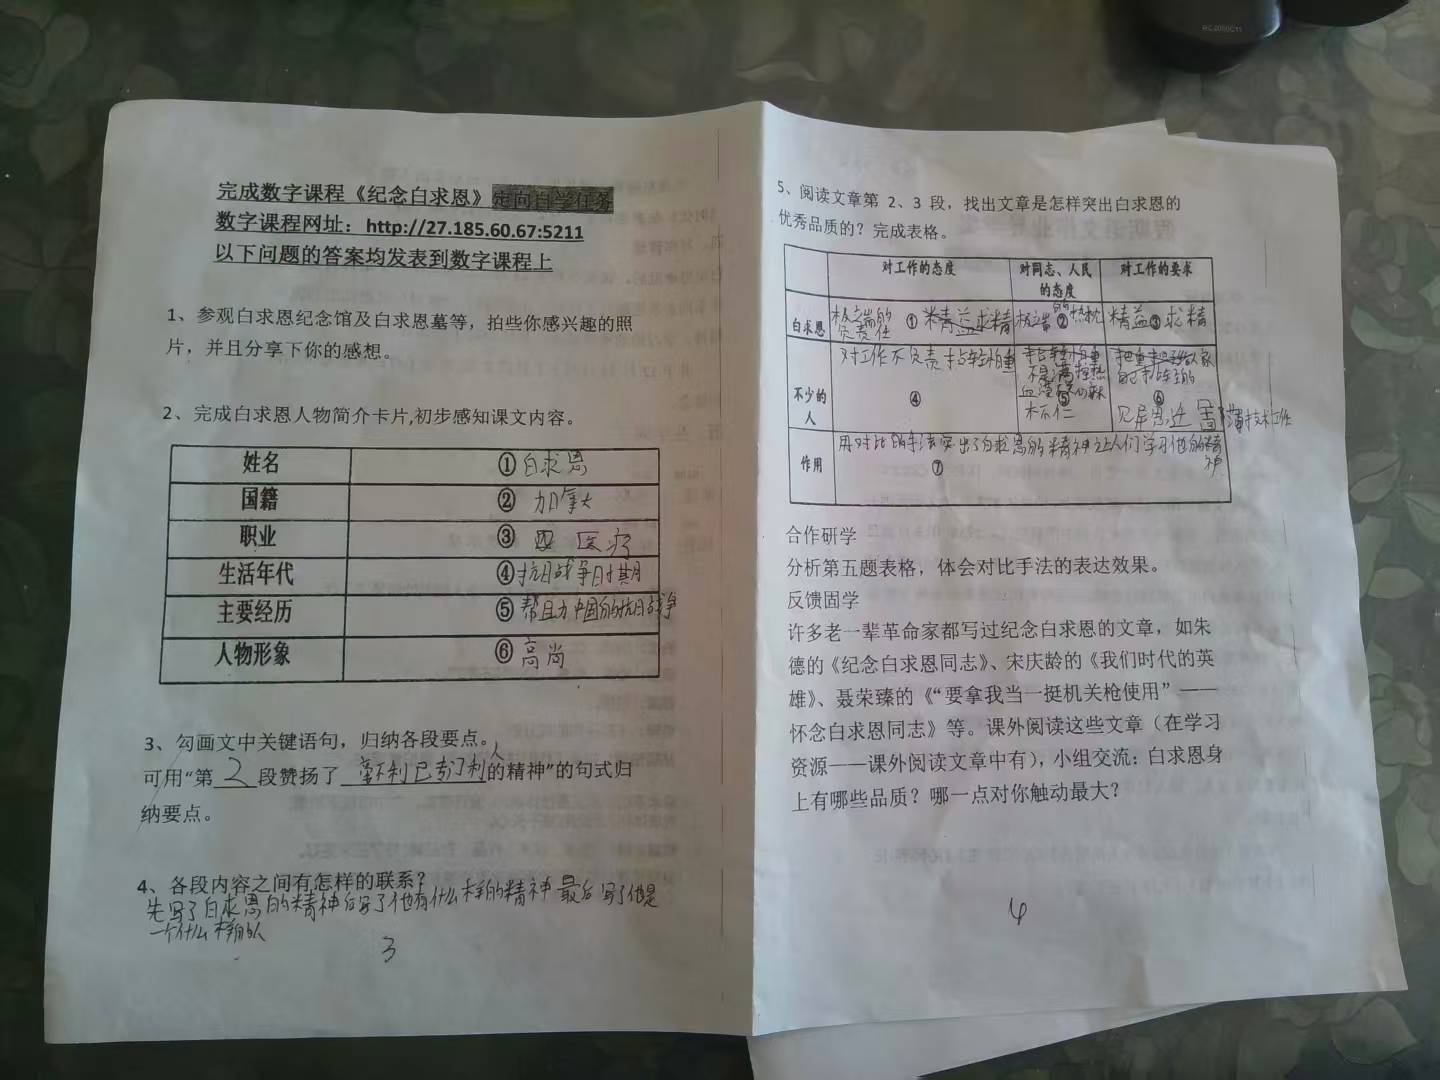 完成数字课程《纪念白求恩》定向自学任务
数字课程网址：http://27.185.60.67:5211
以下问题的答案均发表到数字课程上
1、参观白求恩纪念馆及白求恩墓等，拍些你感兴趣的照
片，并且分享下你的感想。
2、完成白求恩人物简介卡片,初步感知课文内容。
姓名 ①白求恩
国籍 ② 加拿大
职业 ③ 医疗
生活年代 ④抗日战争时期
主要经历 ⑤帮且力中国的抗日战争
人物形象 ⑥高尚
3、勾画文中关键语句，归纳各段要点。
可用“第 2 段赞扬了 毫不利己专门利人的精神”的句式归
纳要点。
4、各段内容之间有怎样的联系？
先写了白求恩的精神后写了他有什么样的精神最后写了他是
一个什么样的人
3
5、阅读文章第 2、3 段，找出文章是怎样突出白求恩的
优秀品质的？完成表格。
对工作的态度 对同志、人民的态度 对工作的要求
白求恩 极端的负责任 ① 极端的热忱 ② 精益③求精
不少的人 对工作不负责拈轻怕重 ④ ⑤ ⑥
见异思迁 技术工作
作用 用对比的手法突出了白求恩的精神让人们学习他的精神 ⑦
合作研学
分析第五题表格，体会对比手法的表达效果。
反馈固学
许多老一辈革命家都写过纪念白求恩的文章，如朱
德的《纪念白求恩同志》、宋庆龄的《我们时代的英
雄》、聂荣臻的《“要拿我当一挺机关枪使用”——
怀念白求恩同志》等。课外阅读这些文章（在学习
资源——课外阅读文章中有），小组交流：白求恩身
上有哪些品质？哪一点对你触动最大？
4
RC2050C11